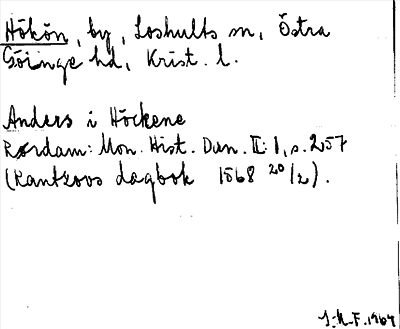 Hökön, by, Loshults sn, Östra
Göinge hd, Krist. l.
Anders i Höckene
Rørdam: Mon. Hist. Dan. II: 1, s. 257
(Rantzovs dagbok 1568 20/2).
J.M.F. 1964